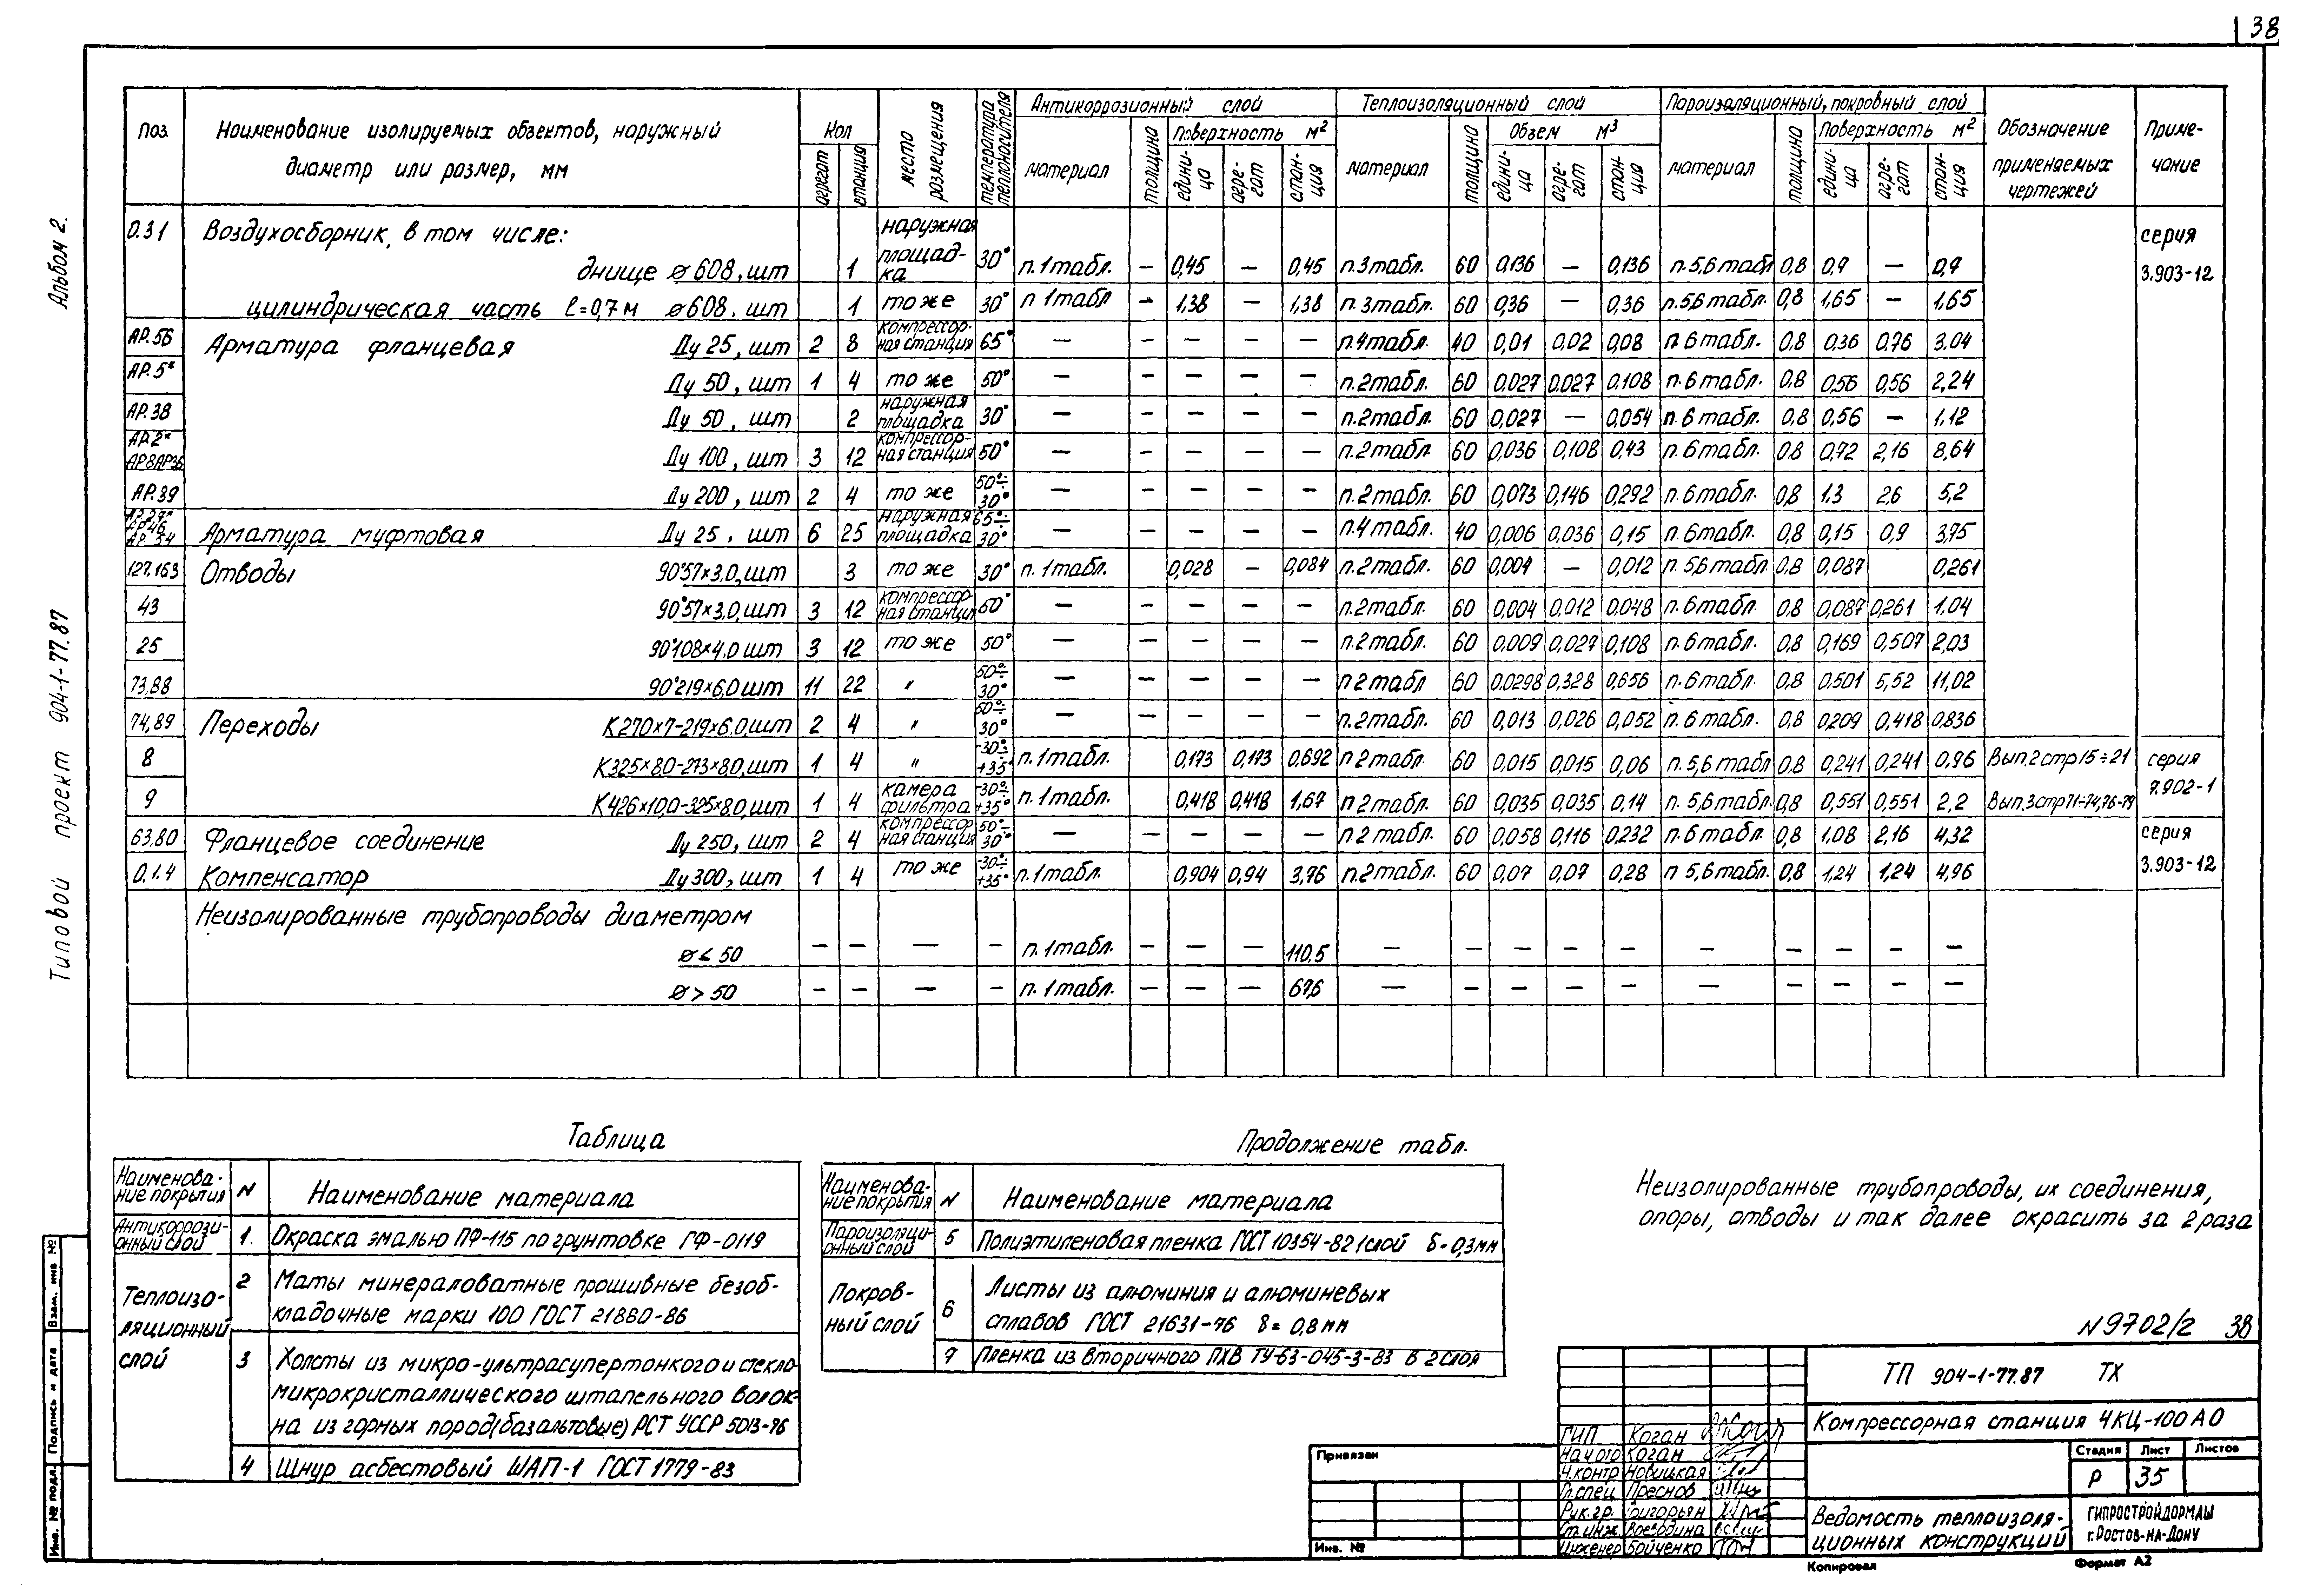 38
Альбом 2.
Типовой проект 904-1-77.87
Поз. Наименование изолируемых объектов, наружный диаметр или размер, мм Кол агрегат станция место размещения температура теплоносителя Антикоррозионный слой материал толщина Поверхность м² едини-ца агре-гат стан-ция Теплоизоляционный слой материал толщина Объем м³ едини-ца агре-гат стан-ция Пароизоляционный, покровный слой материал толщина Поверхность м² едини-ца агре-гат стан-ция Обозначение применяемых чертежей Приме-чание
0.31 Воздухосборник, в том числе:
днище ⌀608, шт 1 наружная площад-ка 30° п.1табл. — 0,45 — 0,45 п.3табл. 60 0,136 — 0,136 п.5,6табл 0,8 0,9 — 0,9 серия 3.903-12
цилиндрическая часть ℓ=0,7м ⌀608, шт 1 то же 30° п 1табл - 1,38 — 1,38 п.3табл. 60 0,36 — 0,36 п.5,6табл. 0,8 1,65 — 1,65
АР.56 Арматура фланцевая Ду 25, шт 2 8 компрессор-ная станция 65° — — — — — п.4табл. 40 0,01 0,02 0,08 п.6табл. 0,8 0,36 0,76 3.04
АР.5* Ду 50, шт 1 4 то же 50° — — — — — п.2табл. 60 0.027 0,027 0.108 п.6табл. 0.8 0,56 0,56 2,24
АР.38 Ду 50, шт 2 наружная площадка 30° — — — — — п.2табл. 60 0,027 — 0.054 п.6табл. 0,8 0,56 — 1,12
АР.2* АР8АР36 Ду 100, шт 3 12 компрессор-ная станция 50° — — — — — п.2табл. 60 0,036 0,108 0,43 п.6табл. 0.8 0,72 2,16 8,64
АР.39 Ду 200, шт 2 4 то же 50°÷30° — — — — — п.2табл. 60 0,073 0,146 0,292 п.6табл. 0,8 1.3 2.6 5,2
АР.46 АР.54 Арматура муфтовая Ду 25, шт 6 25 наружная площадка 65°÷30° — — — — — п.4табл. 40 0,006 0,036 0,15 п.6табл. 0,8 0,15 0,9 3,75
127,163 Отводы 90°57×3,0,шт 3 то же 30° п.1табл. 0,028 — 0,084 п.2табл. 60 0,004 — 0,012 п.5,6табл 0,8 0,087 0,261
43 90°57×3,0,шт 3 12 компрессор-ная станция 50° — — — — — п.2табл. 60 0,004 0,012 0,048 п.6табл. 0.8 0,087 0,261 1.04
25 90°108×4.0 шт 3 12 то же 50° — — — — — п.2табл. 60 0,009 0,027 0,108 п.6табл. 0,8 0,169 0,507 2,03
73,88 90°219×6,0 шт 11 22 " 50°÷30° — — — — — п 2табл 60 0.0298 0,328 0,656 п.6табл. 0,8 0.501 5,52 11,02
74,89 Переходы К270×7-219×6.0,шт 2 4 " 50°÷30° — — — — — п.2табл. 60 0,013 0,026 0,052 п.6табл. 0,8 0,209 0,418 0,836
8 К325×8,0-273×8,0,шт 1 4 " -30°÷+35° п.1табл. 0,173 0,173 0,692 п 2табл. 60 0,015 0,015 0,06 п.5,6табл 0,8 0,241 0,241 0,96 Вып.2 стр 15÷21 серия 7.902-1
9 К426×10,0-325×8.0,шт 1 4 камера фильтра -30°÷+35° п.1табл. 0,418 0,418 1,67 п 2табл. 60 0,035 0,035 0.14 п.5,6табл. 0,8 0,551 0,551 2,2 Вып.3стр71-74,76-79
63,80 Фланцевое соединение Ду 250, шт 2 4 компрессор-ная станция 50°÷30° — — — — — п 2табл. 60 0,058 0,116 0,232 п.6табл. 0,8 1,08 2,16 4,32 серия 3.903-12
0.1.4 Компенсатор Ду300, шт 1 4 то же -30°÷+35° п.1табл. 0,904 0,94 3,76 п.2табл. 60 0,07 0,07 0,28 п 5,6табл. 0,8 1,24 1,24 4,96
Неизолированные трубопроводы диаметром
⌀≤50 — — — — п.1табл. — — — 110,5 — — — — — — — — — —
⌀>50 — — — — п.1табл. — — — 67,6 — — — — — — — — — —
Таблица
Наименова-ние покрытия N Наименование материала
Антикоррози-онный слой 1. Окраска эмалью ПФ-115 по грунтовке ГФ-0119
Теплоизо-ляционный слой
2 Маты минераловатные прошивные безоб-
кладочные марки 100 ГОСТ 21880-86
3 Холсты из микро-ультрасупертонкого и стекло
микрокристаллического штапельного волок-
на из горных пород(базальтовые) РСТ УССР 5013-76
4 Шнур асбестовый ШАП-1 ГОСТ 1779-83
Продолжение табл.
Наименова-ние покрытия N Наименование материала
Пароизоляци-онный слой 5 Полиэтиленовая пленка ГОСТ 10354-82 1слой δ=0,3мм
Покров-ный слой
6 Листы из алюминия и алюминевых
сплавов ГОСТ 21631-76 δ= 0,8мм
7 Пленка из вторичного ПХВ ТУ-63-045-3-83 в 2 слоя
Неизолированные трубопроводы, их соединения,
опоры, отводы и так далее окрасить за 2 раза
N9702/2 38
ТП 904-1-77.87 ТХ
Компрессорная станция 4КЦ-100АО
ГИП Коган
Нач отд Коган
Н.контр Новицкая
Гл.спец Преснов
Рук.гр. Григорьян
Ст.инж. Воеводина
Инженер Бойченко
Стадия Лист Листов
Р 35
Ведомость теплоизоля-
ционных конструкций
ГИПРОСТРОЙДОРМАШ
г.Ростов-на-Дону
Привязан
Инв. №
Копировал
Формат А2
Взам. инв №
Подпись и дата
Инв. № подл.